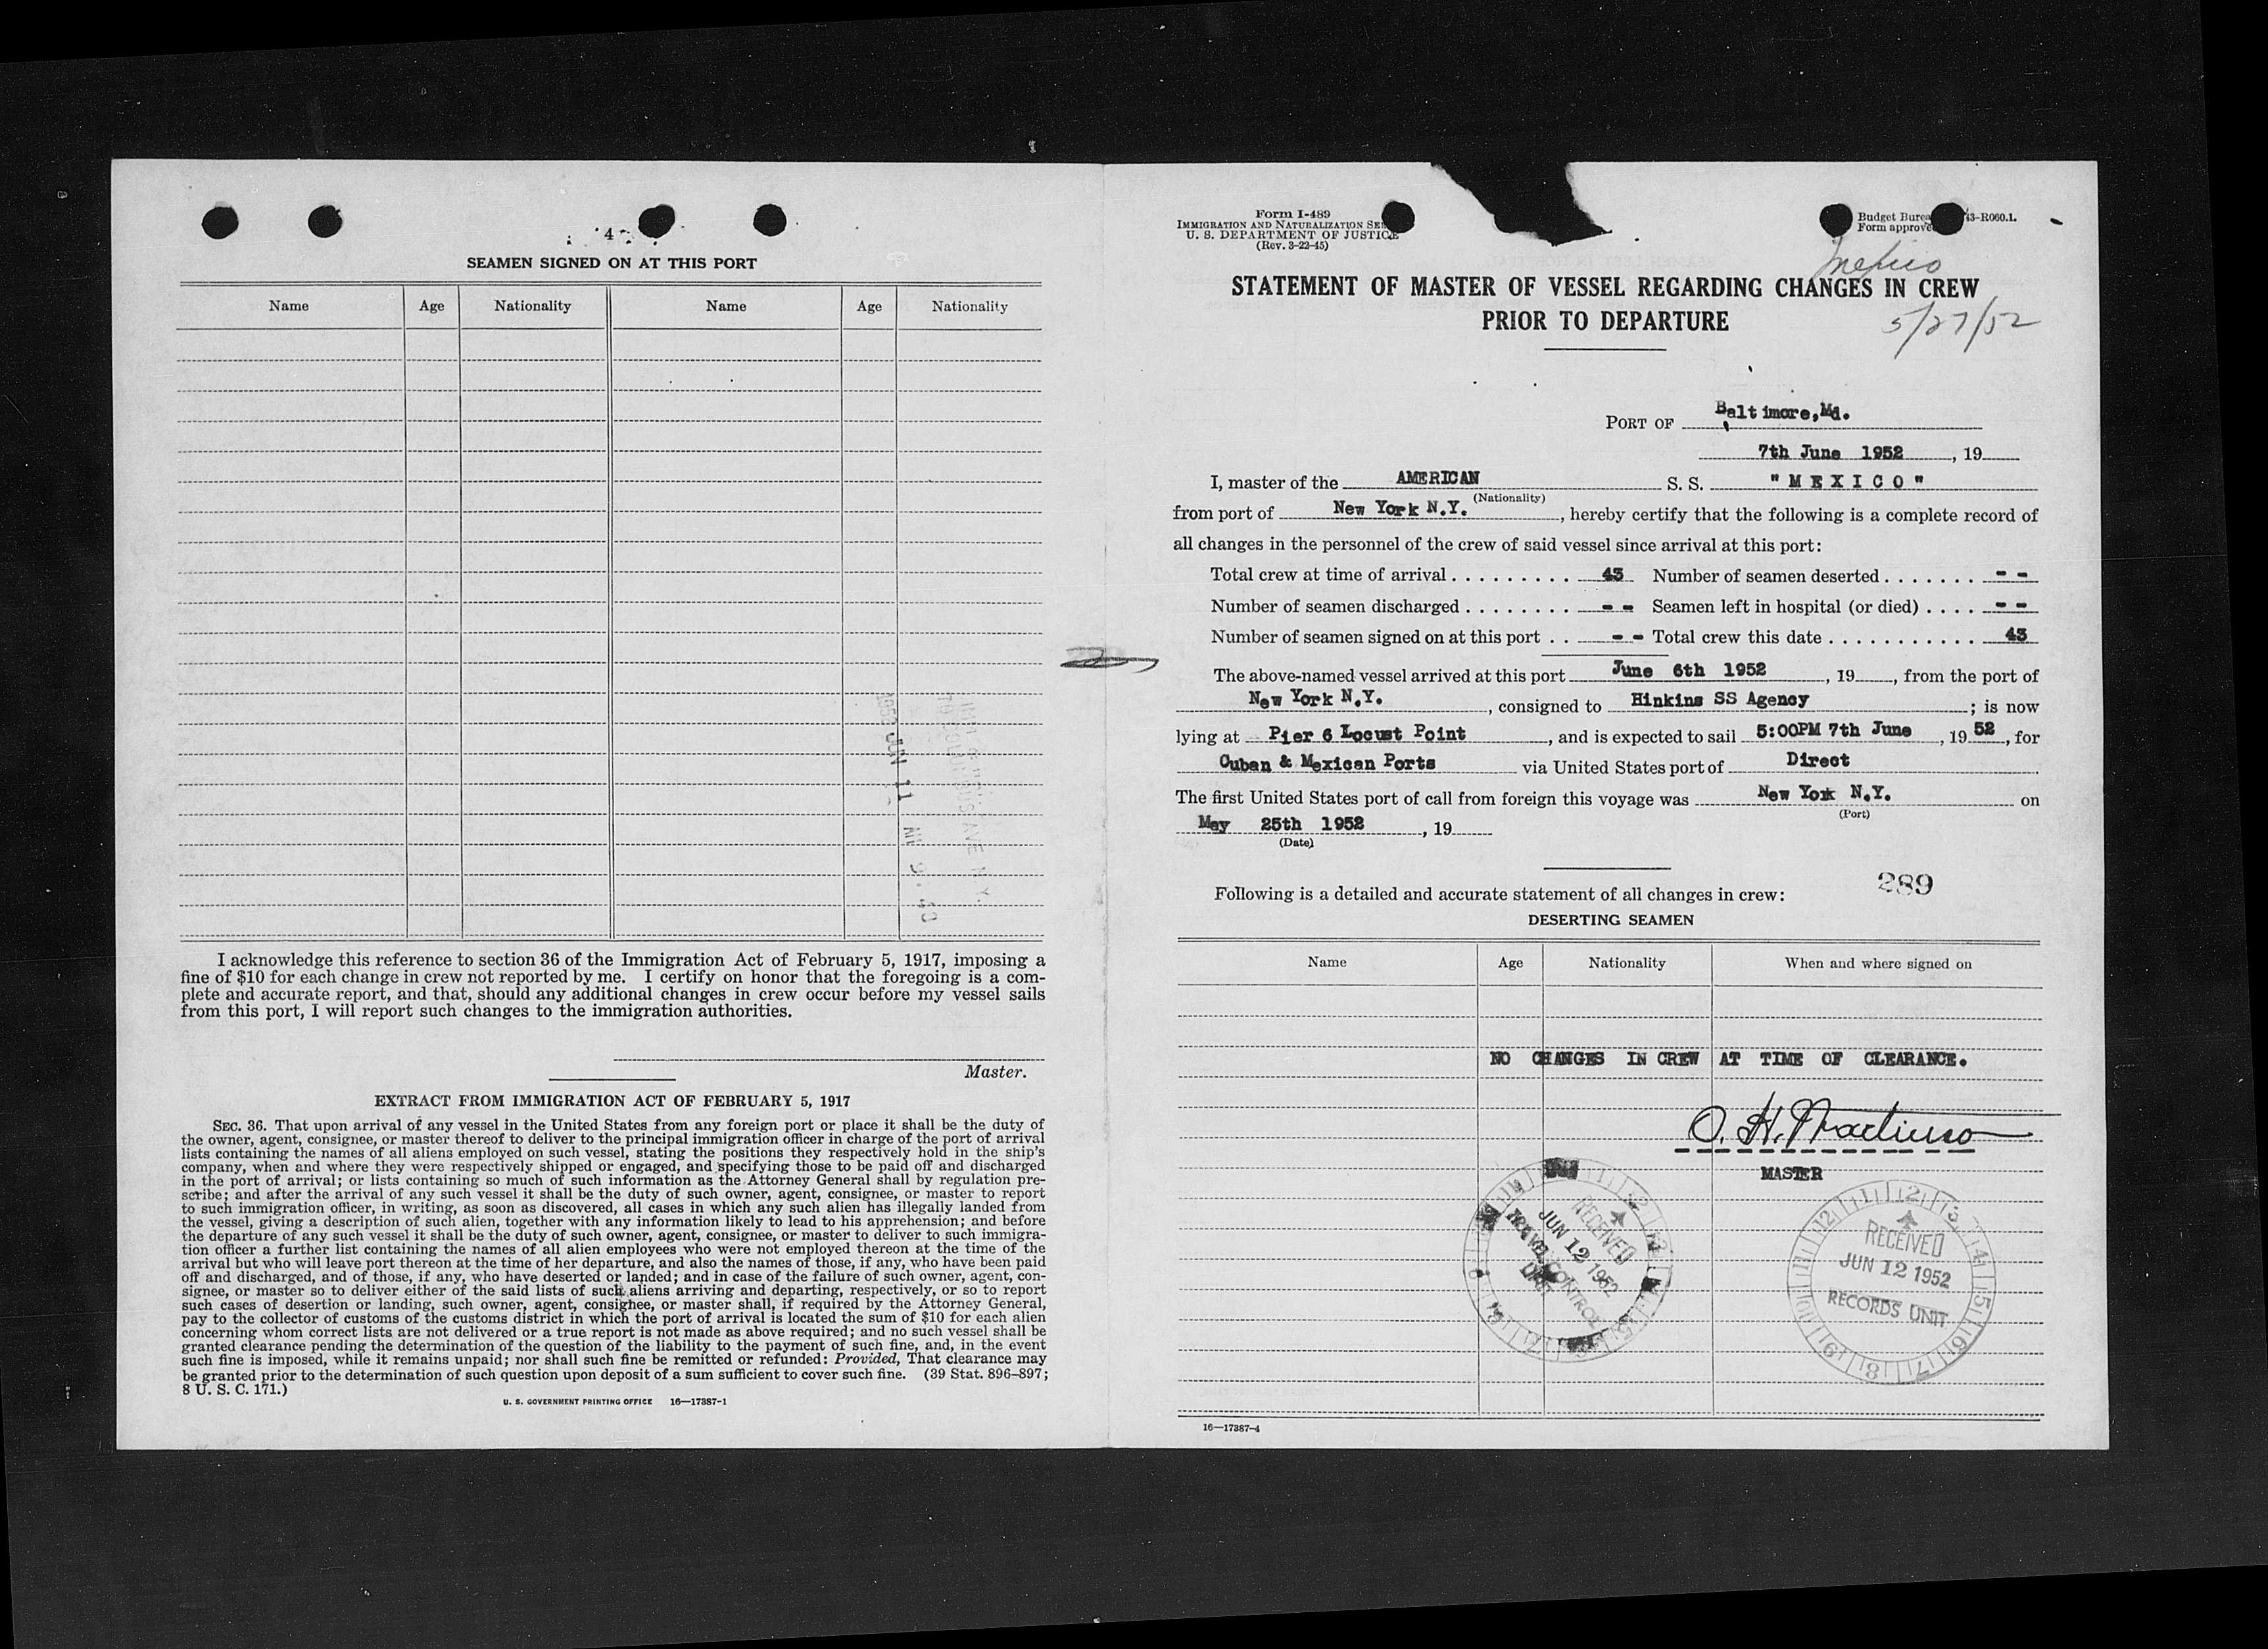 4
SEAMEN SIGNED ON AT THIS PORT
Name Age Nationality Name Age Nationality
1952 JUN 11 AM 9:
I acknowledge this reference to section 36 of the Immigration Act of February 5, 1917, imposing a
fine of $10 for each change in crew not reported by me. I certify on honor that the foregoing is a com-
plete and accurate report, and that, should any additional changes in crew occur before my vessel sails
from this port, I will report such changes to the immigration authorities.
Master.
EXTRACT FROM IMMIGRATION ACT OF FEBRUARY 5, 1917
SEC. 36. That upon arrival of any vessel in the United States from any foreign port or place it shall be the duty of
the owner, agent, consignee, or master thereof to deliver to the principal immigration officer in charge of the port of arrival
lists containing the names of all aliens employed on such vessel, stating the positions they respectively hold in the ship's
company, when and where they were respectively shipped or engaged, and specifying those to be paid off and discharged
in the port of arrival; or lists containing so much of such information as the Attorney General shall by regulation pre-
scribe; and after the arrival of any such vessel it shall be the duty of such owner, agent, consignee, or master to report
to such immigration officer, in writing, as soon as discovered, all cases in which any such alien has illegally landed from
the vessel, giving a description of such alien, together with any information likely to lead to his apprehension; and before
the departure of any such vessel it shall be the duty of such owner, agent, consignee, or master to deliver to such immigra-
tion officer a further list containing the names of all alien employees who were not employed thereon at the time of the
arrival but who will leave port thereon at the time of her departure, and also the names of those, if any, who have been paid
off and discharged, and of those, if any, who have deserted or landed; and in case of the failure of such owner, agent, con-
signee, or master so to deliver either of the said lists of such aliens arriving and departing, respectively, or so to report
such cases of desertion or landing, such owner, agent, consignee, or master shall, if required by the Attorney General,
pay to the collector of customs of the customs district in which the port of arrival is located the sum of $10 for each alien
concerning whom correct lists are not delivered or a true report is not made as above required; and no such vessel shall be
granted clearance pending the determination of the question of the liability to the payment of such fine, and, in the event
such fine is imposed, while it remains unpaid; nor shall such fine be remitted or refunded: Provided, That clearance may
be granted prior to the determination of such question upon deposit of a sum sufficient to cover such fine. (39 Stat. 896–897;
8 U. S. C. 171.)
U. S. GOVERNMENT PRINTING OFFICE 16—17387-1
Form I-489
IMMIGRATION AND NATURALIZATION SE
U. S. DEPARTMENT OF JUSTICE
(Rev. 3-22-45)
Budget Burea 43-R060.1.
Form approve
Mexico
STATEMENT OF MASTER OF VESSEL REGARDING CHANGES IN CREW
PRIOR TO DEPARTURE
5/27/52
PORT OF Baltimore, Md.
7th June 1952, 19
I, master of the AMERICAN S. S. "MEXICO"
(Nationality)
from port of New York N.Y., hereby certify that the following is a complete record of
all changes in the personnel of the crew of said vessel since arrival at this port:
Total crew at time of arrival . . . . . . . . . 43 Number of seamen deserted . . . . . . . - -
Number of seamen discharged . . . . . . . . - - Seamen left in hospital (or died) . . . . - -
Number of seamen signed on at this port . . - - Total crew this date . . . . . . . . . . . 43
The above-named vessel arrived at this port June 6th 1952, 19, from the port of
New York N.Y., consigned to Hinkins SS Agency; is now
lying at Pier 6 Locust Point, and is expected to sail 5:00PM 7th June, 19 52, for
Cuban & Mexican Ports via United States port of Direct
The first United States port of call from foreign this voyage was New York N.Y. on
(Port)
May 25th 1952, 19
(Date)
289
Following is a detailed and accurate statement of all changes in crew:
DESERTING SEAMEN
Name Age Nationality When and where signed on
NO CHANGES IN CREW AT TIME OF CLEARANCE.
O. H. Martinso
MASTER
RECEIVED
JUN 12 1952
TRAVEL CONTROL
UNIT
RECEIVED
JUN 12 1952
RECORDS UNIT
16—17387-4